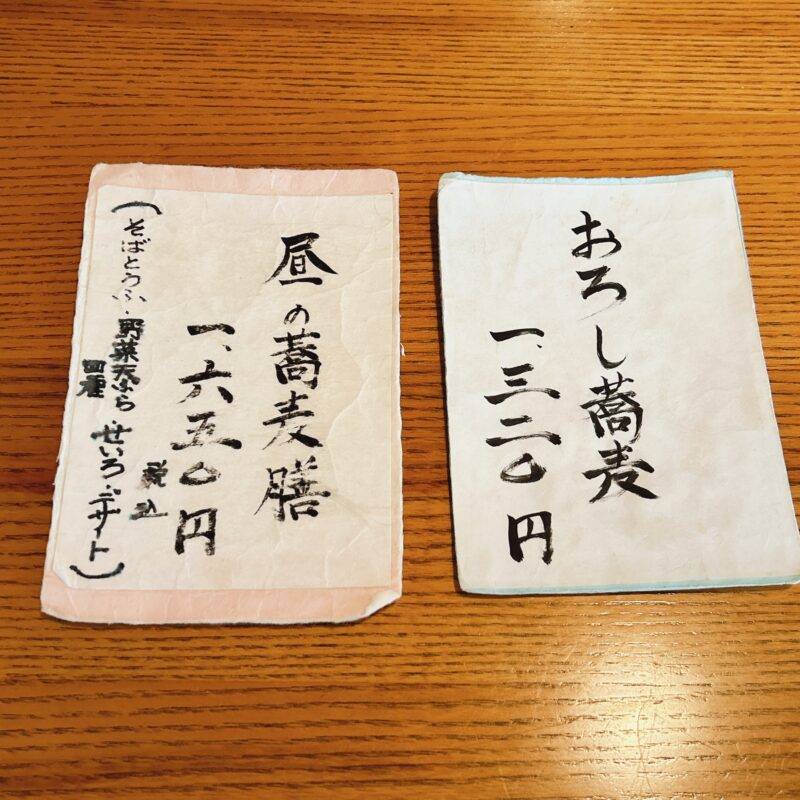 昼の蕎麦膳
一、六五〇円
税込
(そばとうふ・野菜天ぷら四種 せいろ・デザート)
おろし蕎麦
一、三二〇円